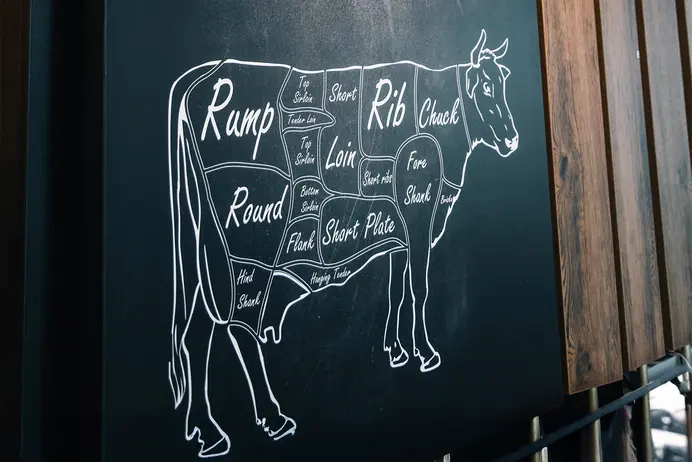 Rump
Top
Sirloin
Tender Loin
Top
Sirloin
Bottom
Sirloin
Short
Loin
Rib
Chuck
Short ribs
Fore
Shank
Round
Flank
Short Plate
Hind
Shank
Hanging Tender